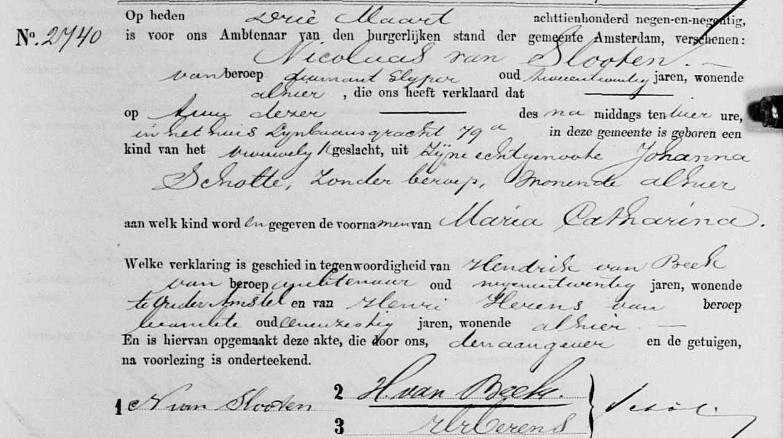 Op heden Drie Maart achttienhonderd negen-en-negentig,
No. 2740 is voor ons Ambtenaar van den burgerlijken stand der gemeente Amsterdam, verschenen:
Nicolaas van Slooten. —
van beroep diamantslyper oud tweeentwintig jaren, wonende
alhier, die ons heeft verklaard dat
op dezer des na middags ten vier ure,
in het huis Lynbaansgracht 79a in deze gemeente is geboren een
kind van het vrouwelyk geslacht, uit zyne echtgenoote Johanna
Scholte, zonder beroep, wonende alhier
aan welk kind worden gegeven de voornamen van Maria Catharina.
Welke verklaring is geschied in tegenwoordigheid van Hendrik van Beek
van beroep oud negenentwintig jaren, wonende
te Ouder Amstel en van Henri Herens van beroep
beambte oud eenenzestig jaren, wonende alhier —
En is hiervan opgemaakt deze akte, die door ons, den aangever en de getuigen,
na voorlezing is onderteekend.
1 N van Slooten
2 H. van Beek.
3